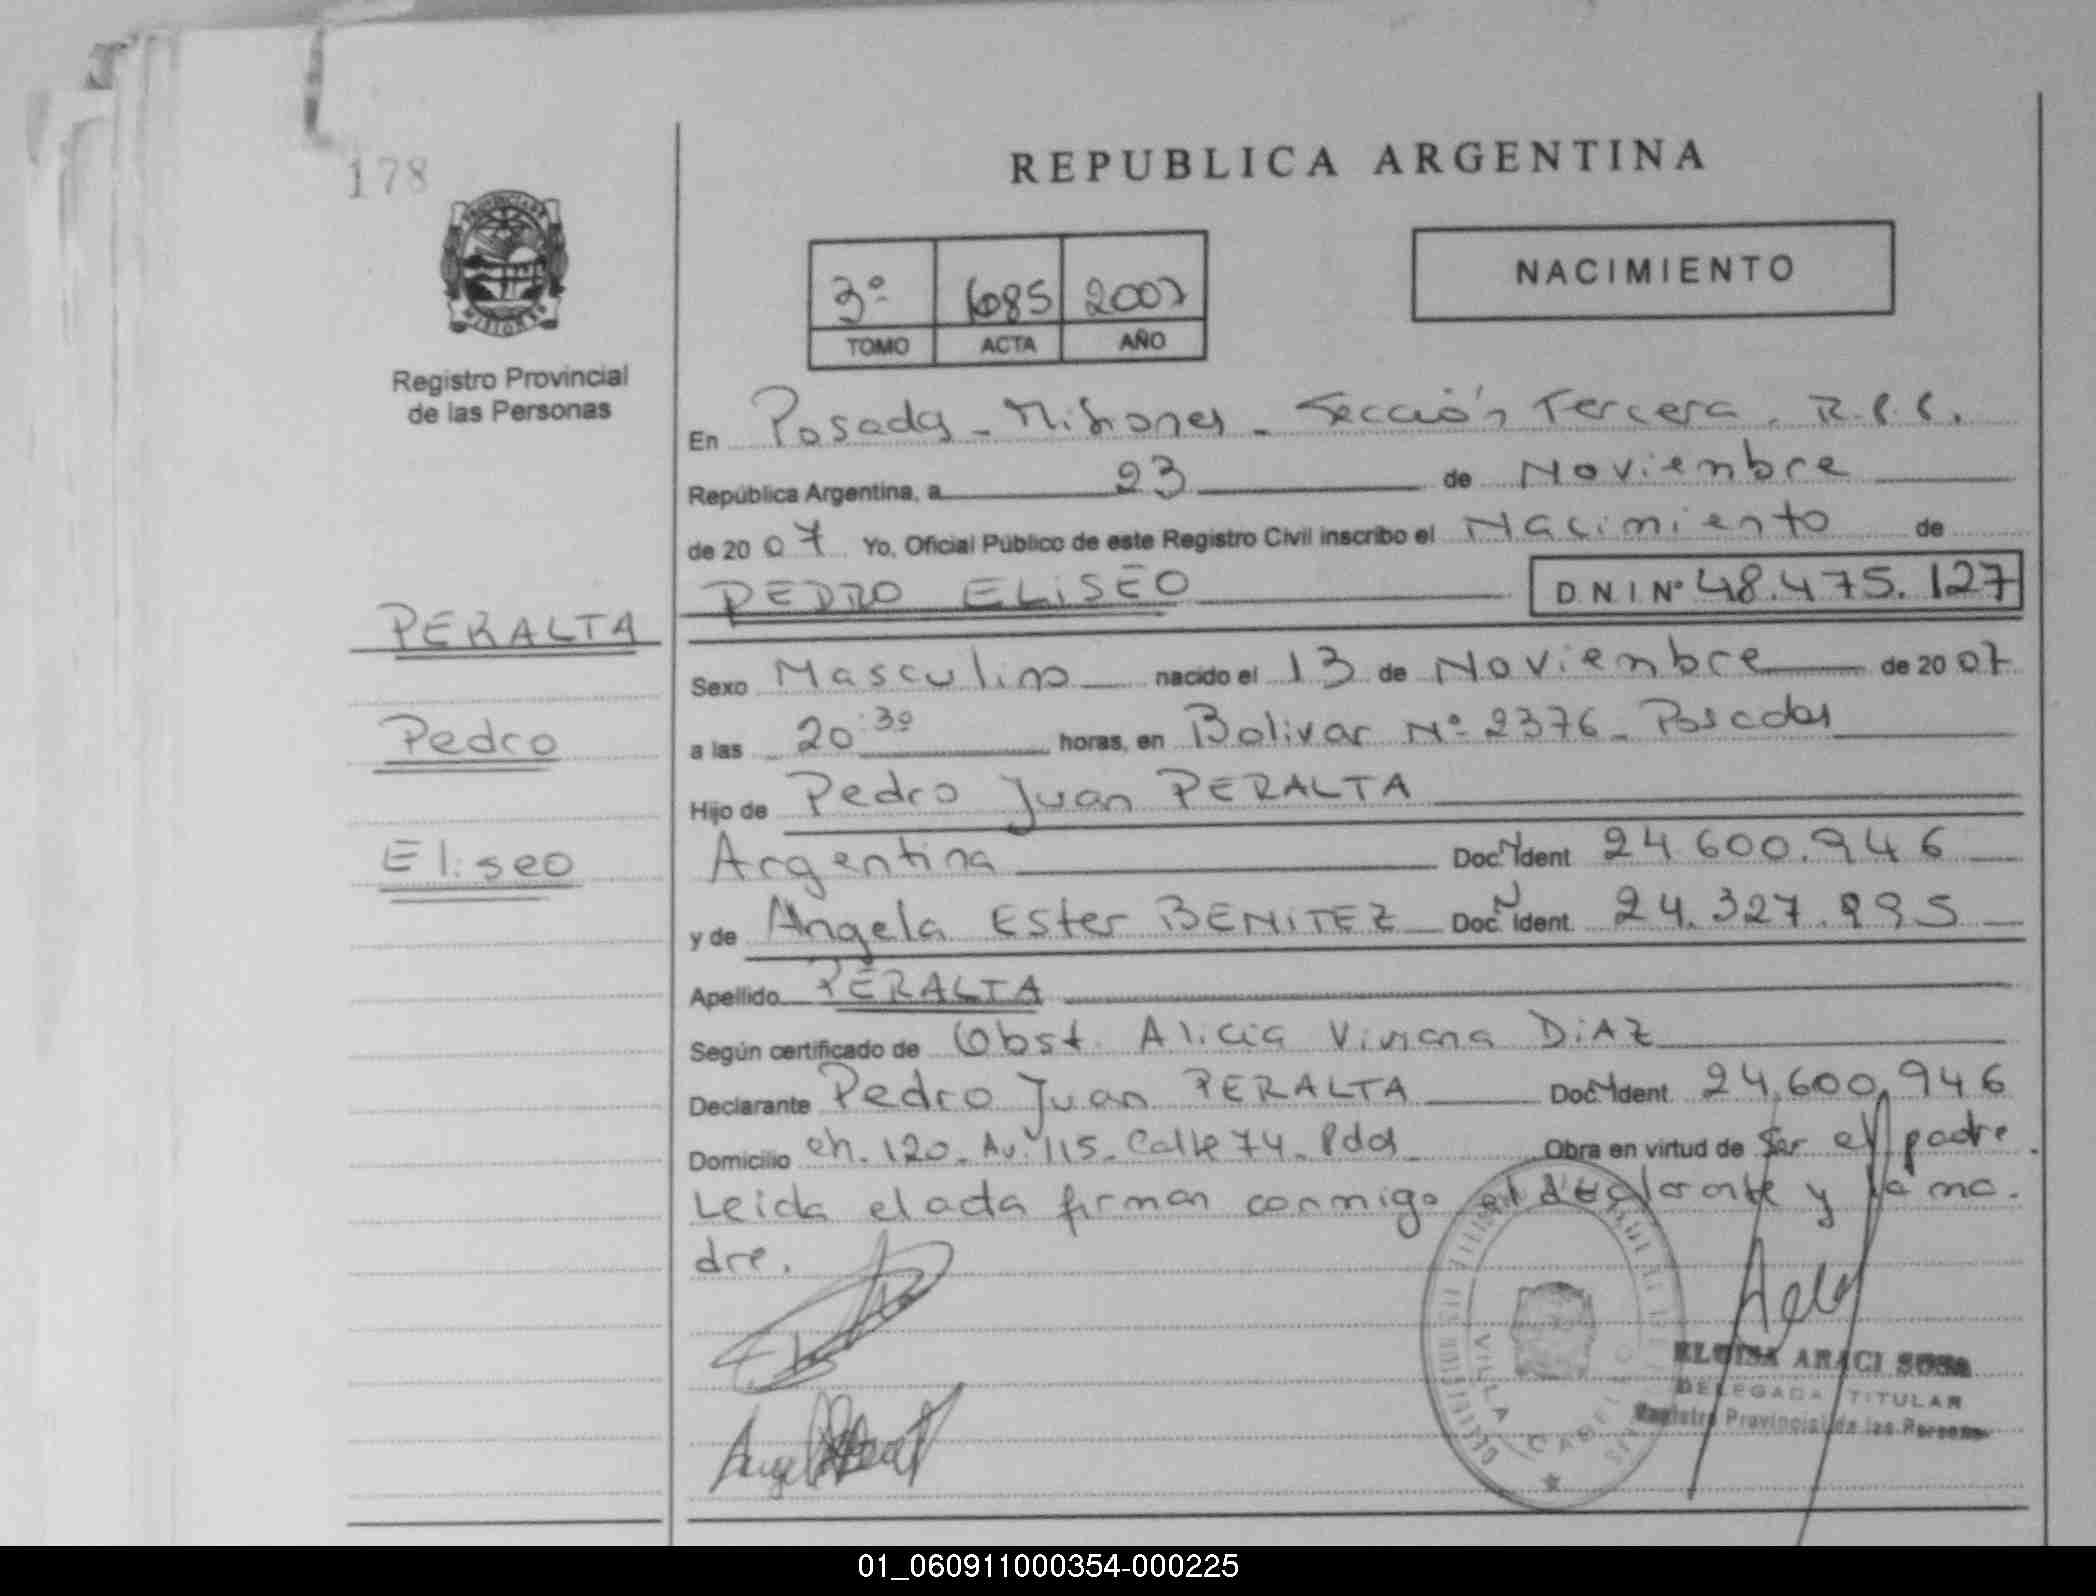 178
REPUBLICA ARGENTINA
NACIMIENTO
3º 685 2007
TOMO ACTA AÑO
Registro Provincial
de las Personas
En Posadas - Misiones - Sección Tercera.
República Argentina, a 23 de Noviembre
de 2007 Yo, Oficial Público de este Registro Civil inscribo el Nacimiento de
PEDRO ELISEO D.N.I Nº 48.475.127
PERALTA
Pedro
Eliseo
Sexo Masculino nacido el 13 de Noviembre de 2007
a las 20:30 horas, en Bolivar Nº 2376 - Posadas
Hijo de Pedro Juan PERALTA
Argentina Doc. N Ident 24.600.946
y de Angela Ester BENITEZ Doc. N Ident.
Apellido PERALTA
Según certificado de Obst. Alicia Viviana DiAZ
Declarante Pedro Juan PERALTA Doc. N Ident. 24.600.946
Domicilio Ch. 120 - Av. 115 - Calle 74 - Pdas Obra en virtud de Ser el padre.
Leida el acta firman conmigo el declarante y la ma-
dre.
VILLA CABELLO
ELOISA ARACI SOSA
DELEGADA TITULAR
Registro Provincial de las Personas
01_060911000354-000225